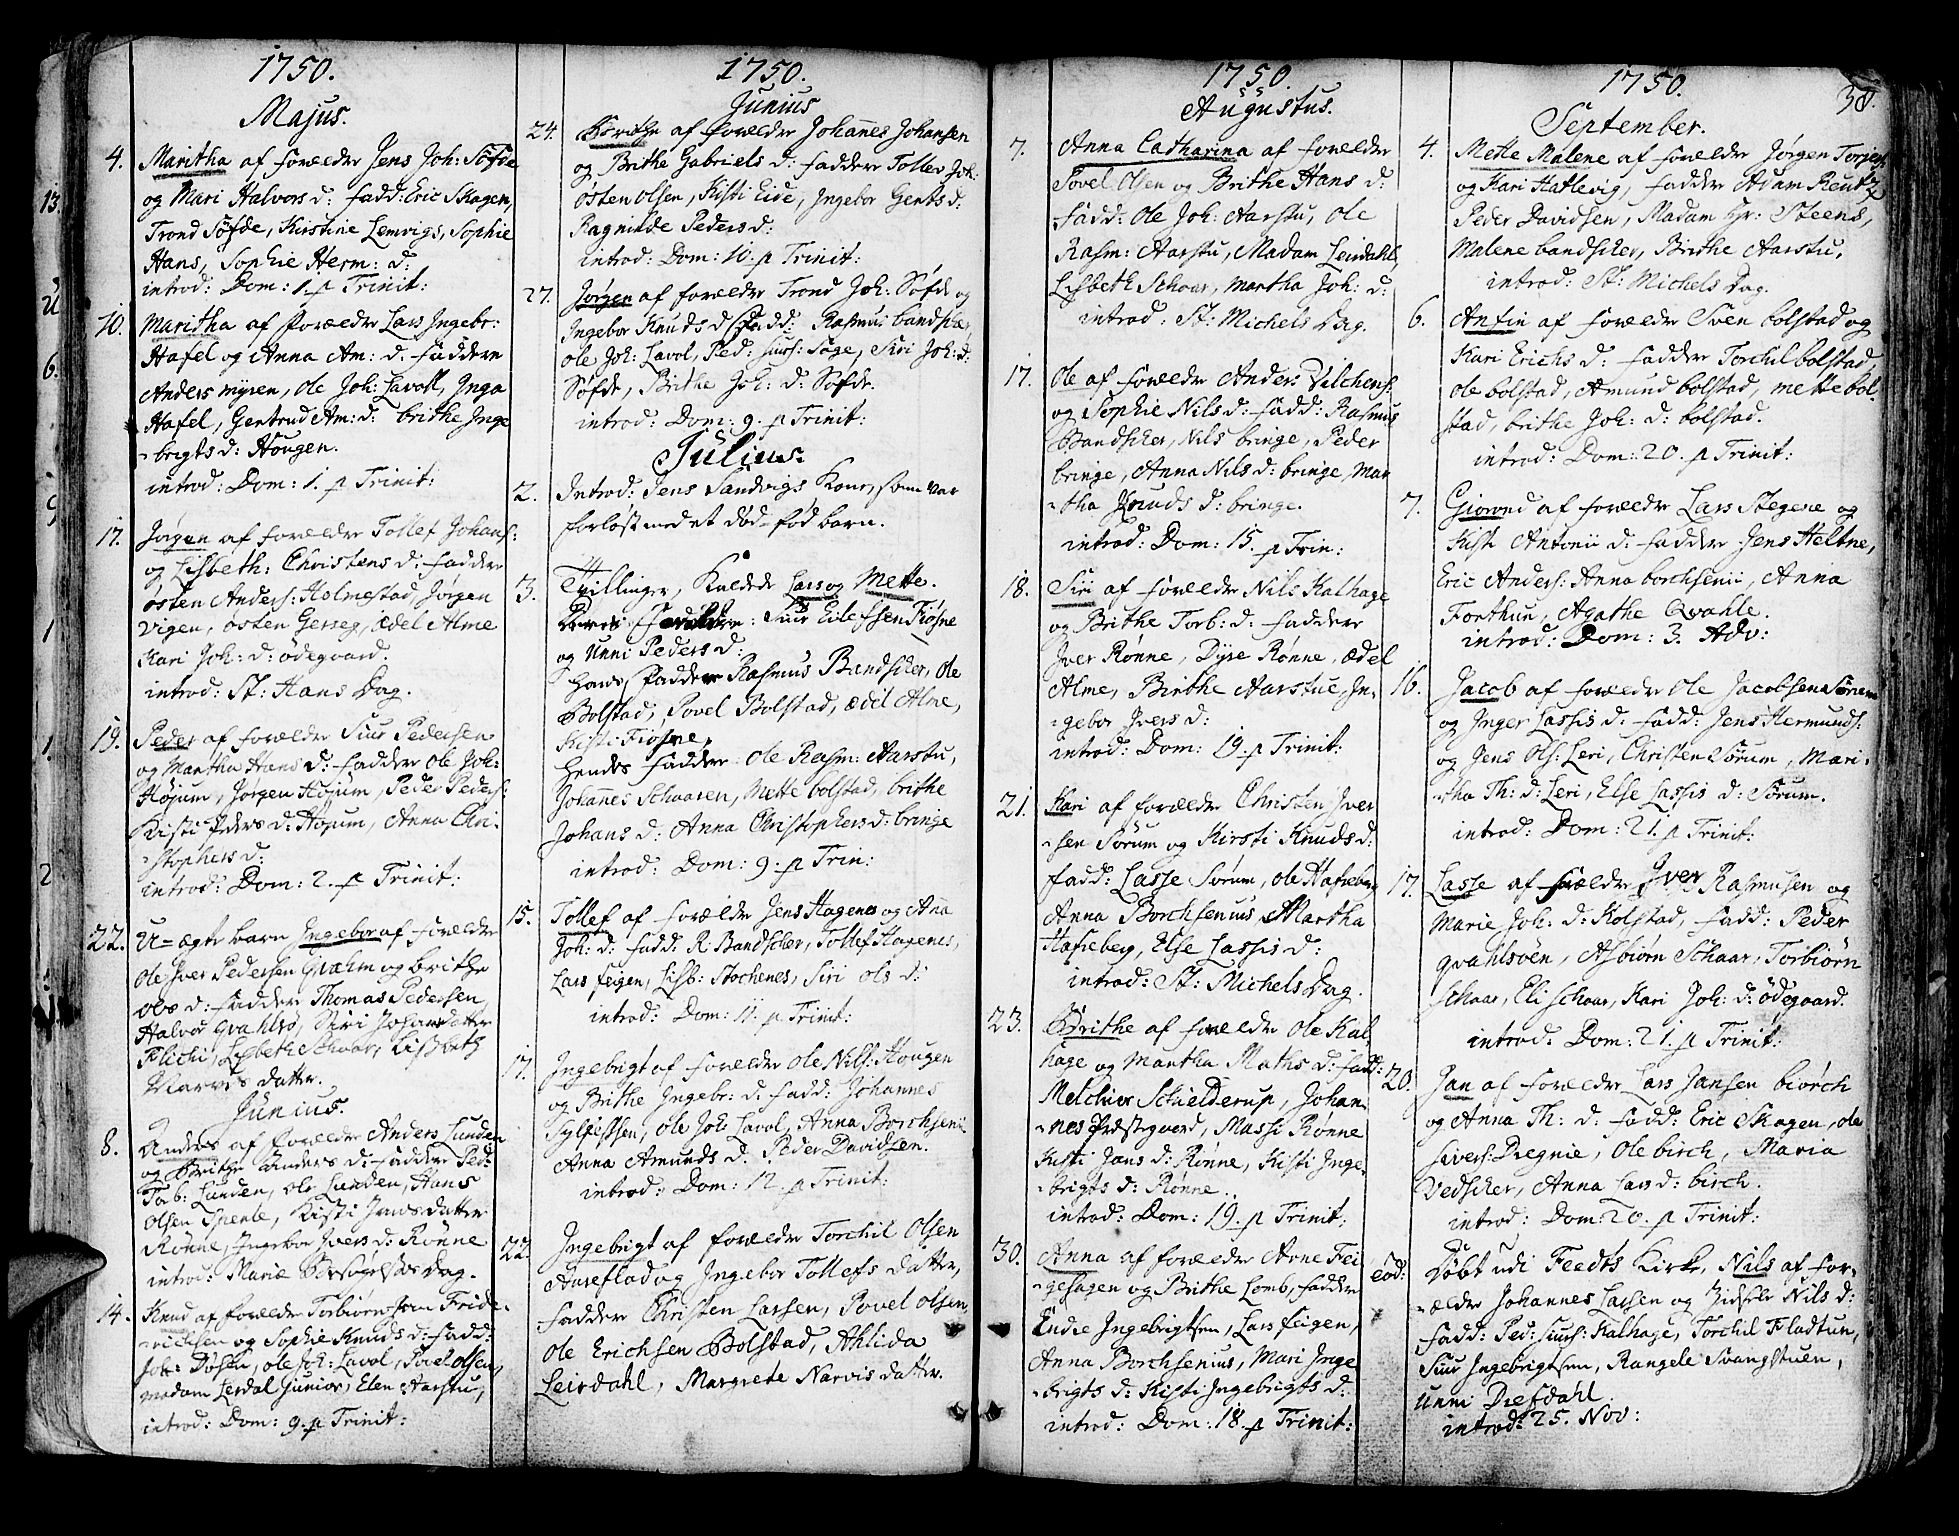 1750.
Majus.
4. Maritha af forældre Jens Joh: Søfde
og Mari Halvors d: fadd: Eric Skagen,
Trond Søfde, Kirstine Lemvigs, Sophie
Hans, Sophie Herm: d:
introd: Dom: 1. p Trinit:
10. Maritha af forældre Lars Ingebr:
Hafel og Anna Am: d: faddere
Anders myren, ole Joh: Lavoll, Inga
Hafel, Gertrud Am: d: brithe Inge
-brigts d: Hougen.
introd: Dom: 1. p Trinit:
17. Jørgen af forældre Tollef Johans:
og Lisbeth: Christens d: faddere
østen Anders: Holmestad, Jørgen
Vigen, østen Gerseg, Ædel Alme
Kari Joh: d: ødegaard.
introd: St: Hans Dag.
19. Peder af forældre Siur Pedersen
og Martha Hans d: faddere ole Joh:
Højum, Jørgen Højum, Peder Peders:
Kisti Peders d: Højum, Anna Chri-
-stophers d:
introd: Dom: 2. p Trinit:
22. U-ægte barn Ingebor af forældre
ole Iver Pedersen Qvahm og brithe
oles d: faddere Thomas Pedersen,
Halvor qvahlsø, Siri Johansdatter
Flichi, Lisbeth Schaar, Lisbeth
Narves datter.
Junius.
8. Anders af forældre Anders Lunden
og Brithe Anders d: faddere Ped:
Torb: Lunden, ole Lunden, Hans
olsen Sperle, Kisti Jensdatter
Rønne, Ingebor Ivers d: Rønne
introd: Mariæ Besøgelses Dag.
14. Knud af forældre Torbiørn Fride-
-richsen og Sophie Knuds d: fadd:
Joh: Døsen, ole Joh: Lavol, Povel olsen,
madam Lerdal Junior, Elen Aarstu,
introd: Dom: 9. p Trinit:
1750.
Junius
24. Brithe af forældre Johannes Johansen
og Brithe Gabriels d: faddere Tolles Joh:
østen olsen, Kisti Eide, Ingebor Gerts d:
Ragnilde Peders d:
introd: Dom: 10. p Trinit:
27. Jørgen af forældre Trond Joh: Søfde og
Ingebor Knuds d: fadd: Rasmus bandscher
ole Joh: Lavol, Ped: siurs: Søge, Siri Joh: d:
Søfde, Brithe Joh: d: Søfde.
introd: Dom: 9. p Trinit:
Julius.
2. Introd: Jens Sandvigs Kone, som var
forløst med et død-fød barn.
3. Tvillinger, kaldede Lars og Mette.
forældre: Siur Eilefsen Fiøsne
og Unni Peders d:
Hans faddere Rasmus Bandscher, ole
Bolstad, Povel Bolstad, ædil Alme,
Kisti Fiøsne,
Hendes faddere: ole Rasm: Aarstu,
Johannes Schaaren, Mette bolstad, brithe
Johans d: Anna Christophers d: bringe
introd: Dom: 9. p Trin:
15. Tollef af forældre Jens Hagenes og Ana
Joh: d: fadd: R: Bandscher, Tollef Hagenes,
Lars feigen, Lisb: Stochenes, Siri ols d:
introd: Dom: 11. p Trinit:
17. Ingebrigt af forældre ole Nils: Hougen
og Brithe Ingebr: d: fadd: Johannes
Sylfestsen, ole Joh: Lavol, Anna Borchsenii
Anna Amunds d: Peder Davidsen.
introd: Dom: 12. p Trinit:
22. Ingebrigt af forældre Torchil Olsen
Aureflad og Ingebor Tollefs datter,
faddere Christen Larsen, Povel olsen,
ole Erichsen Bolstad, Ahlida
Leirdahl, Margrete Narvis datter.
1750.
Augustus.
7. Anna Catharina af forældre
Povel Olsen og Brithe Hans d:
fadd: ole Joh: Aarstu, ole
Rasm: Aarstu, Madam Leirdahl,
Lisbeth Schaar, martha Joh: d:
introd: St: Michels Dag.
17. ole af forældre Anders Vilchens:
og Sophie Nils d: fadd: Rasmus
Bandscher, Nils bringe, Peder
bringe, Anna Nils d: bringe, Mar
-tha Knuds d: bringe.
introd: Dom: 15. p Trin:
18. Siri af forældre Nils Kalhage
og Brithe Torb: d: faddere
Iver Rønne, Dyre Rønne, Ædel
Alme, Birthe Aarstue, In-
-gebor Ivers d:
introd: Dom: 19. p Trinit:
21. Kari af forældre Christen Iver
-sen Sørum og Kirsti Knuds d:
fadd: Lasse Sørum, ole Hafseberg
Anna Borchsenius Martha
Hafseberg, Else Lassis d:
introd: St: Michels Dag.
23. Brithe af forældre ole Kal-
hage og Martha Maths d: fadd:
Melchior Schielderup, Johan-
-nes Præstegaard, Massi Rønne
Kisti Jans d: Rønne, Kisti Inge-
-brigts d: Rønne.
introd: Dom: 19. p Trinit:
30. Anna af forældre Arne Fei-
-gesagen og Brithe Lomb, faddere
Endre Ingebrigtsen, Lars feigen,
Anna Borchsenius, Mari Inge
-brigts d: Kisti Ingebrigts d:
introd: Dom: 18. p Trinit:
1750.
38.
September.
4. Mette Malene af forældre Jørgen Torjers:
og Kari Hatlevig, faddere Adam Reutz
Peder Davidsen, Madam Hr: Steens,
Malene bandscher, Brithe Aarstu,
introd: St: Michels Dag.
6. Anfin af forældre Sven bolstad og
Kari Erichs d: faddere Torchil bolstad,
ole bolstad, Amund bolstad, mette bol-
stad, brithe Joh: d: bolstad.
introd: Dom: 20. p Trinit:
7. Giørond af forældre Lars Stegene og
Kisti Antonii d: faddere Jens Heltne,
Eric Anders: Anna borchsenii, Anna
Forthun, Agathe Qvahle.
introd: Dom: 3. Adv:
16. Jacob af forældre ole Jacobsen Sørum
og Inger Lassis d: fadd: Jens Hermunds:
og Jens Ols: Leri, Christen Sørum, Mari-
-tha Th: d: Leri, Else Lassis d: Sørum.
introd: Dom: 21. p Trinit:
17. Lasse af forældre Iver Rasmusen og
Marie Joh: d: Kolstad, fadd: Peder
qvahlsøen, Asbiørn Schaar, Torbiørn
Schaar, Eli Schaar, Kari Joh: d: ødegaard.
introd: Dom: 21. p Trinit:
20. Jan af forældre Lars Jansen biørch
og Anna Th: d: fadd: Eric Skagen, ole
sivers: Dregnie, ole birch, Maria
Vedscher, Anna Lars d: birch.
introd: Dom: 20. p Trinit:
eod: Døbt udi Feedts Kirke, Nils af for-
-ældre Johannes Larsen og Zidsele Nils d:
fadd: Ped: siurs: Kalhage, Torchil Fladtun,
Siur Ingebrigtsen, Rangele Svangstuen,
Unni Drefdahl.
introd: 25. Nov: